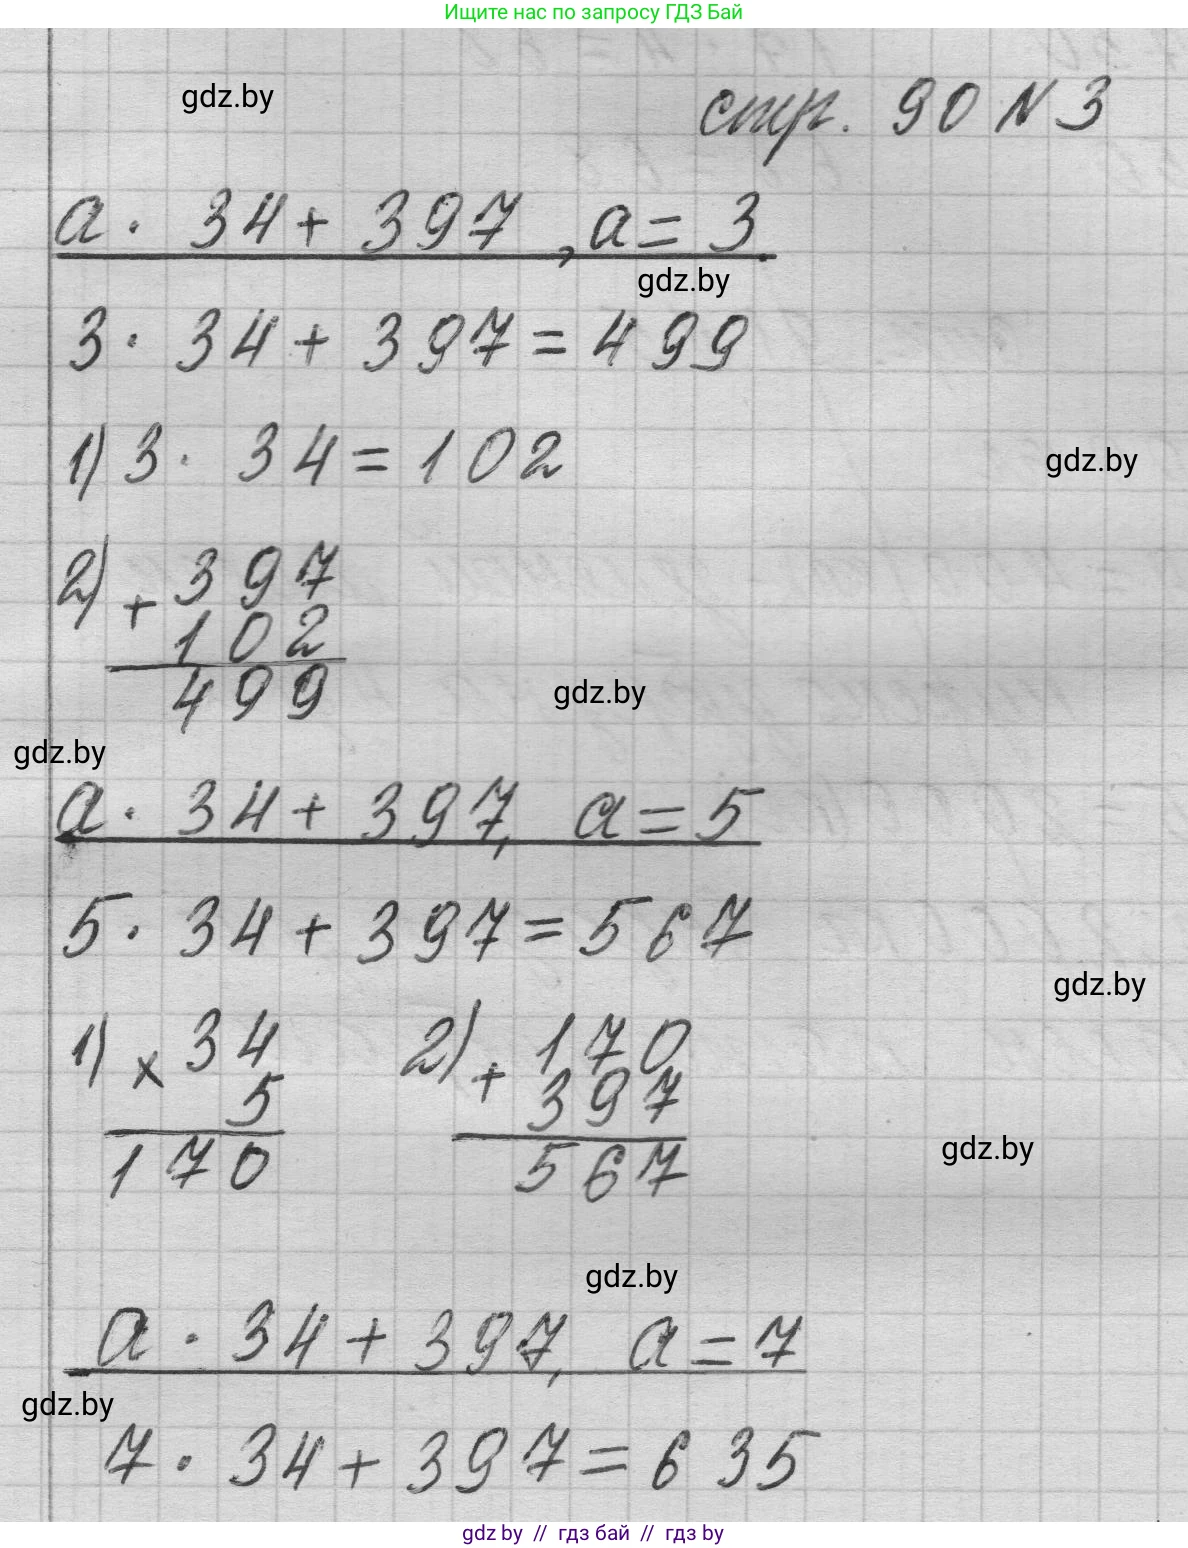 Ищите нас по запросу ГДЗ Бай
gdz.by
стр. 90 N 3
a · 34 + 397, a = 3.
gdz.by
3 · 34 + 397 = 499
1) 3 · 34 = 102
gdz.by
2) + 397
102
499
gdz.by
gdz.by
a · 34 + 397, a = 5
5 · 34 + 397 = 567
gdz.by
1) x 34 2) + 170
5 397
170 567
gdz.by
gdz.by
a · 34 + 397, a = 7
gdz.by
7 · 34 + 397 = 635
gdz by // гдз бай // гдз by